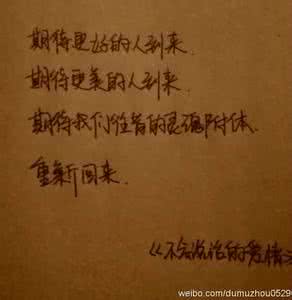 期待更好的人到来.
期待更美的人到来.
期待我们往昔的灵魂附体.
重新回来.
《不会说话的爱情》
weibo.com/dumuzhou0529